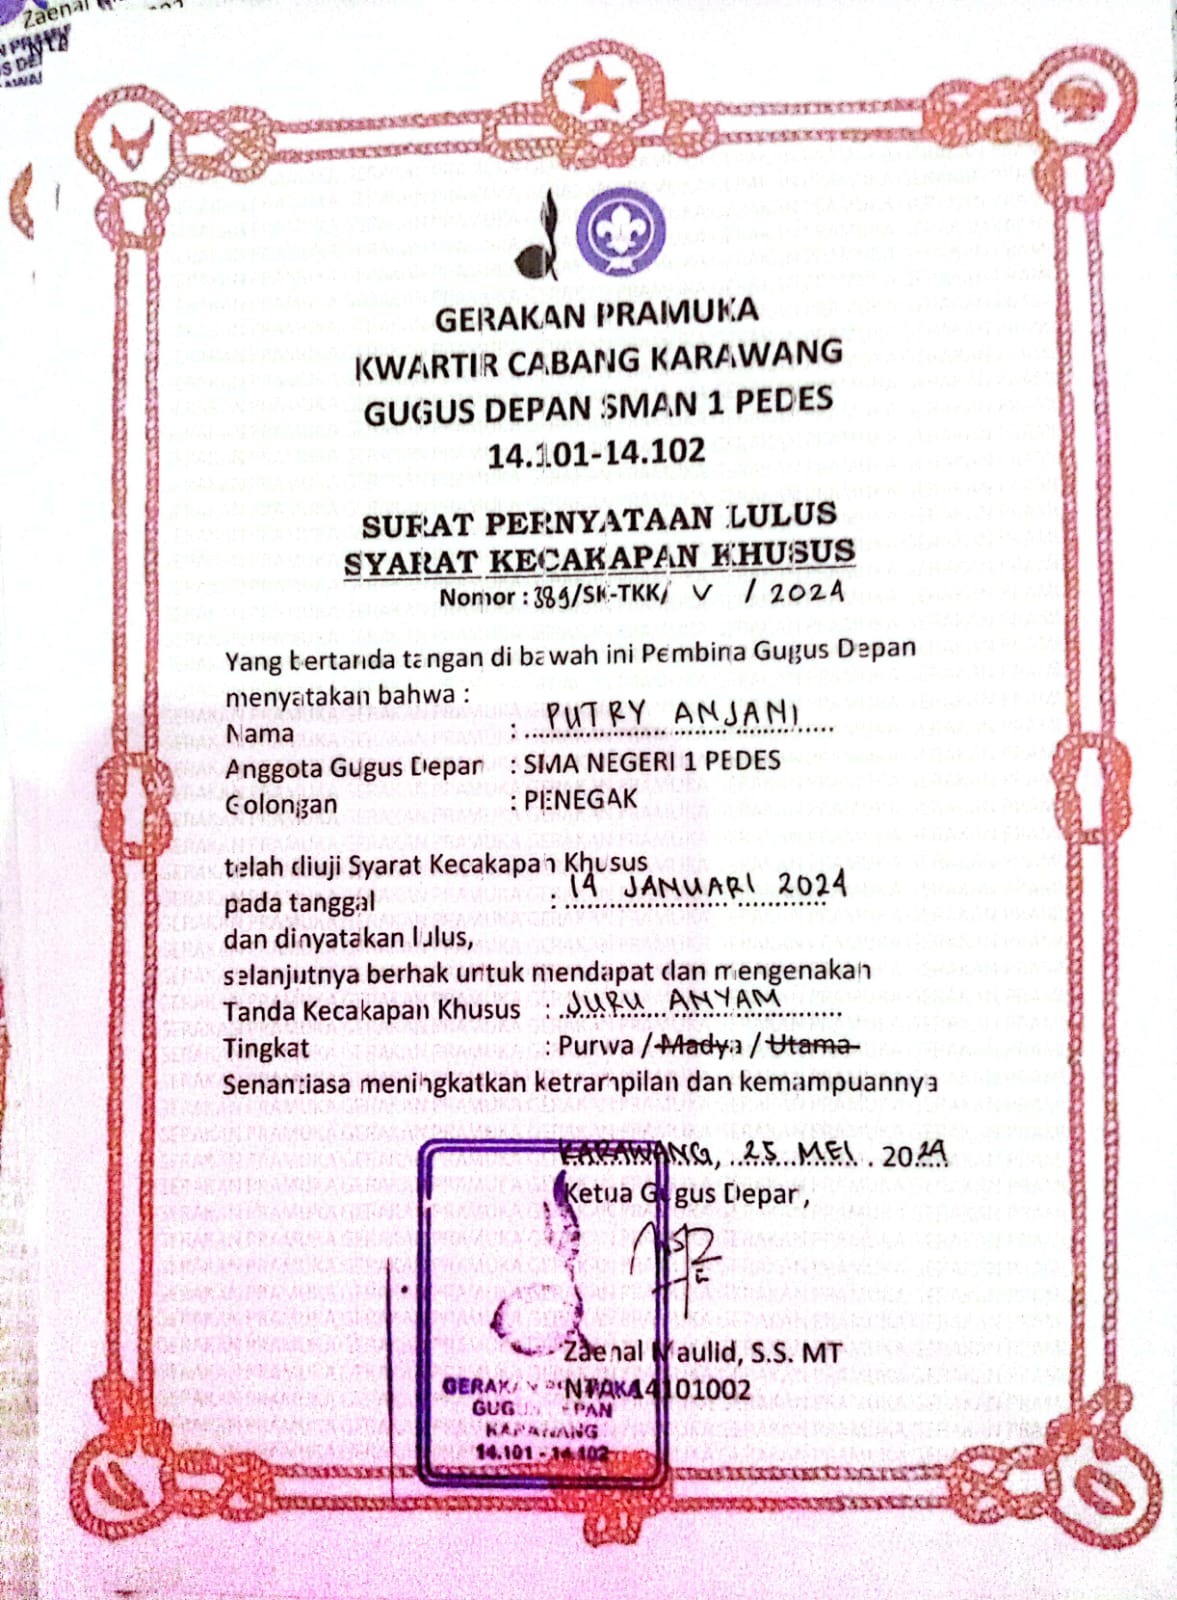 Zaenal
GERAKAN PRAMUKA
KWARTIR CABANG KARAWANG
GUGUS DEPAN SMAN 1 PEDES
14.101-14.102
SURAT PERNYATAAN LULUS
SYARAT KECAKAPAN KHUSUS
Nomor : 389/SK-TKK/ V / 2024
Yang bertanda tangan di bawah ini Pembina Gugus Depan
menyatakan bahwa :
Nama : PUTRY ANJANI
Anggota Gugus Depan : SMA NEGERI 1 PEDES
Golongan : PENEGAK
telah diuji Syarat Kecakapan Khusus
pada tanggal : 14 JANUARI 2024
dan dinyatakan lulus,
selanjutnya berhak untuk mendapat dan mengenakan
Tanda Kecakapan Khusus : JURU ANYAM
Tingkat : Purwa / Madya / Utama
Senantiasa meningkatkan ketrampilan dan kemampuannya
KARAWANG, 25 MEI 2024
Ketua Gugus Depan,
Zaenal Maulid, S.S. MT
NTA. 14101002
GERAKAN PRAMUKA
GUGUS DEPAN
KARAWANG
14.101 - 14.102